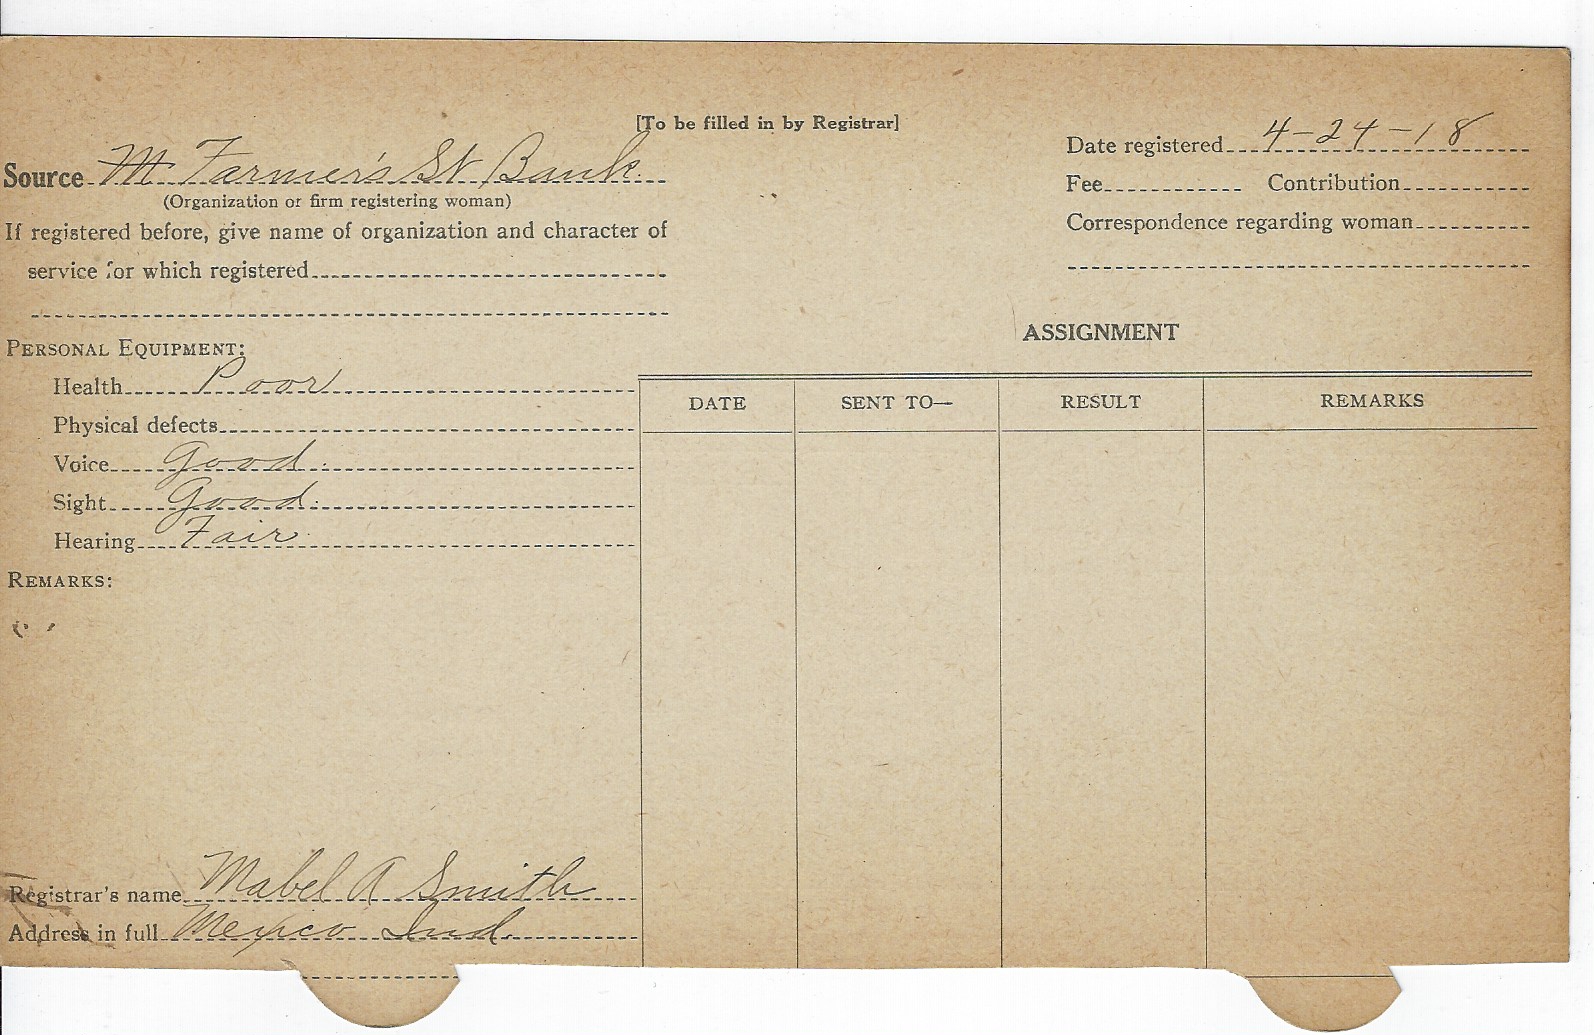 [To be filled in by Registrar]
Source M Farmer's St Bank
(Organization or firm registering woman)
If registered before, give name of organization and character of
service for which registered
Date registered 4-24-18
Fee Contribution
Correspondence regarding woman
PERSONAL EQUIPMENT:
Health Poor
Physical defects
Voice Good.
Sight Good.
Hearing Fair
REMARKS:
ASSIGNMENT
DATE SENT TO— RESULT REMARKS
Registrar's name Mabel A Smith
Address in full Mexico Ind.